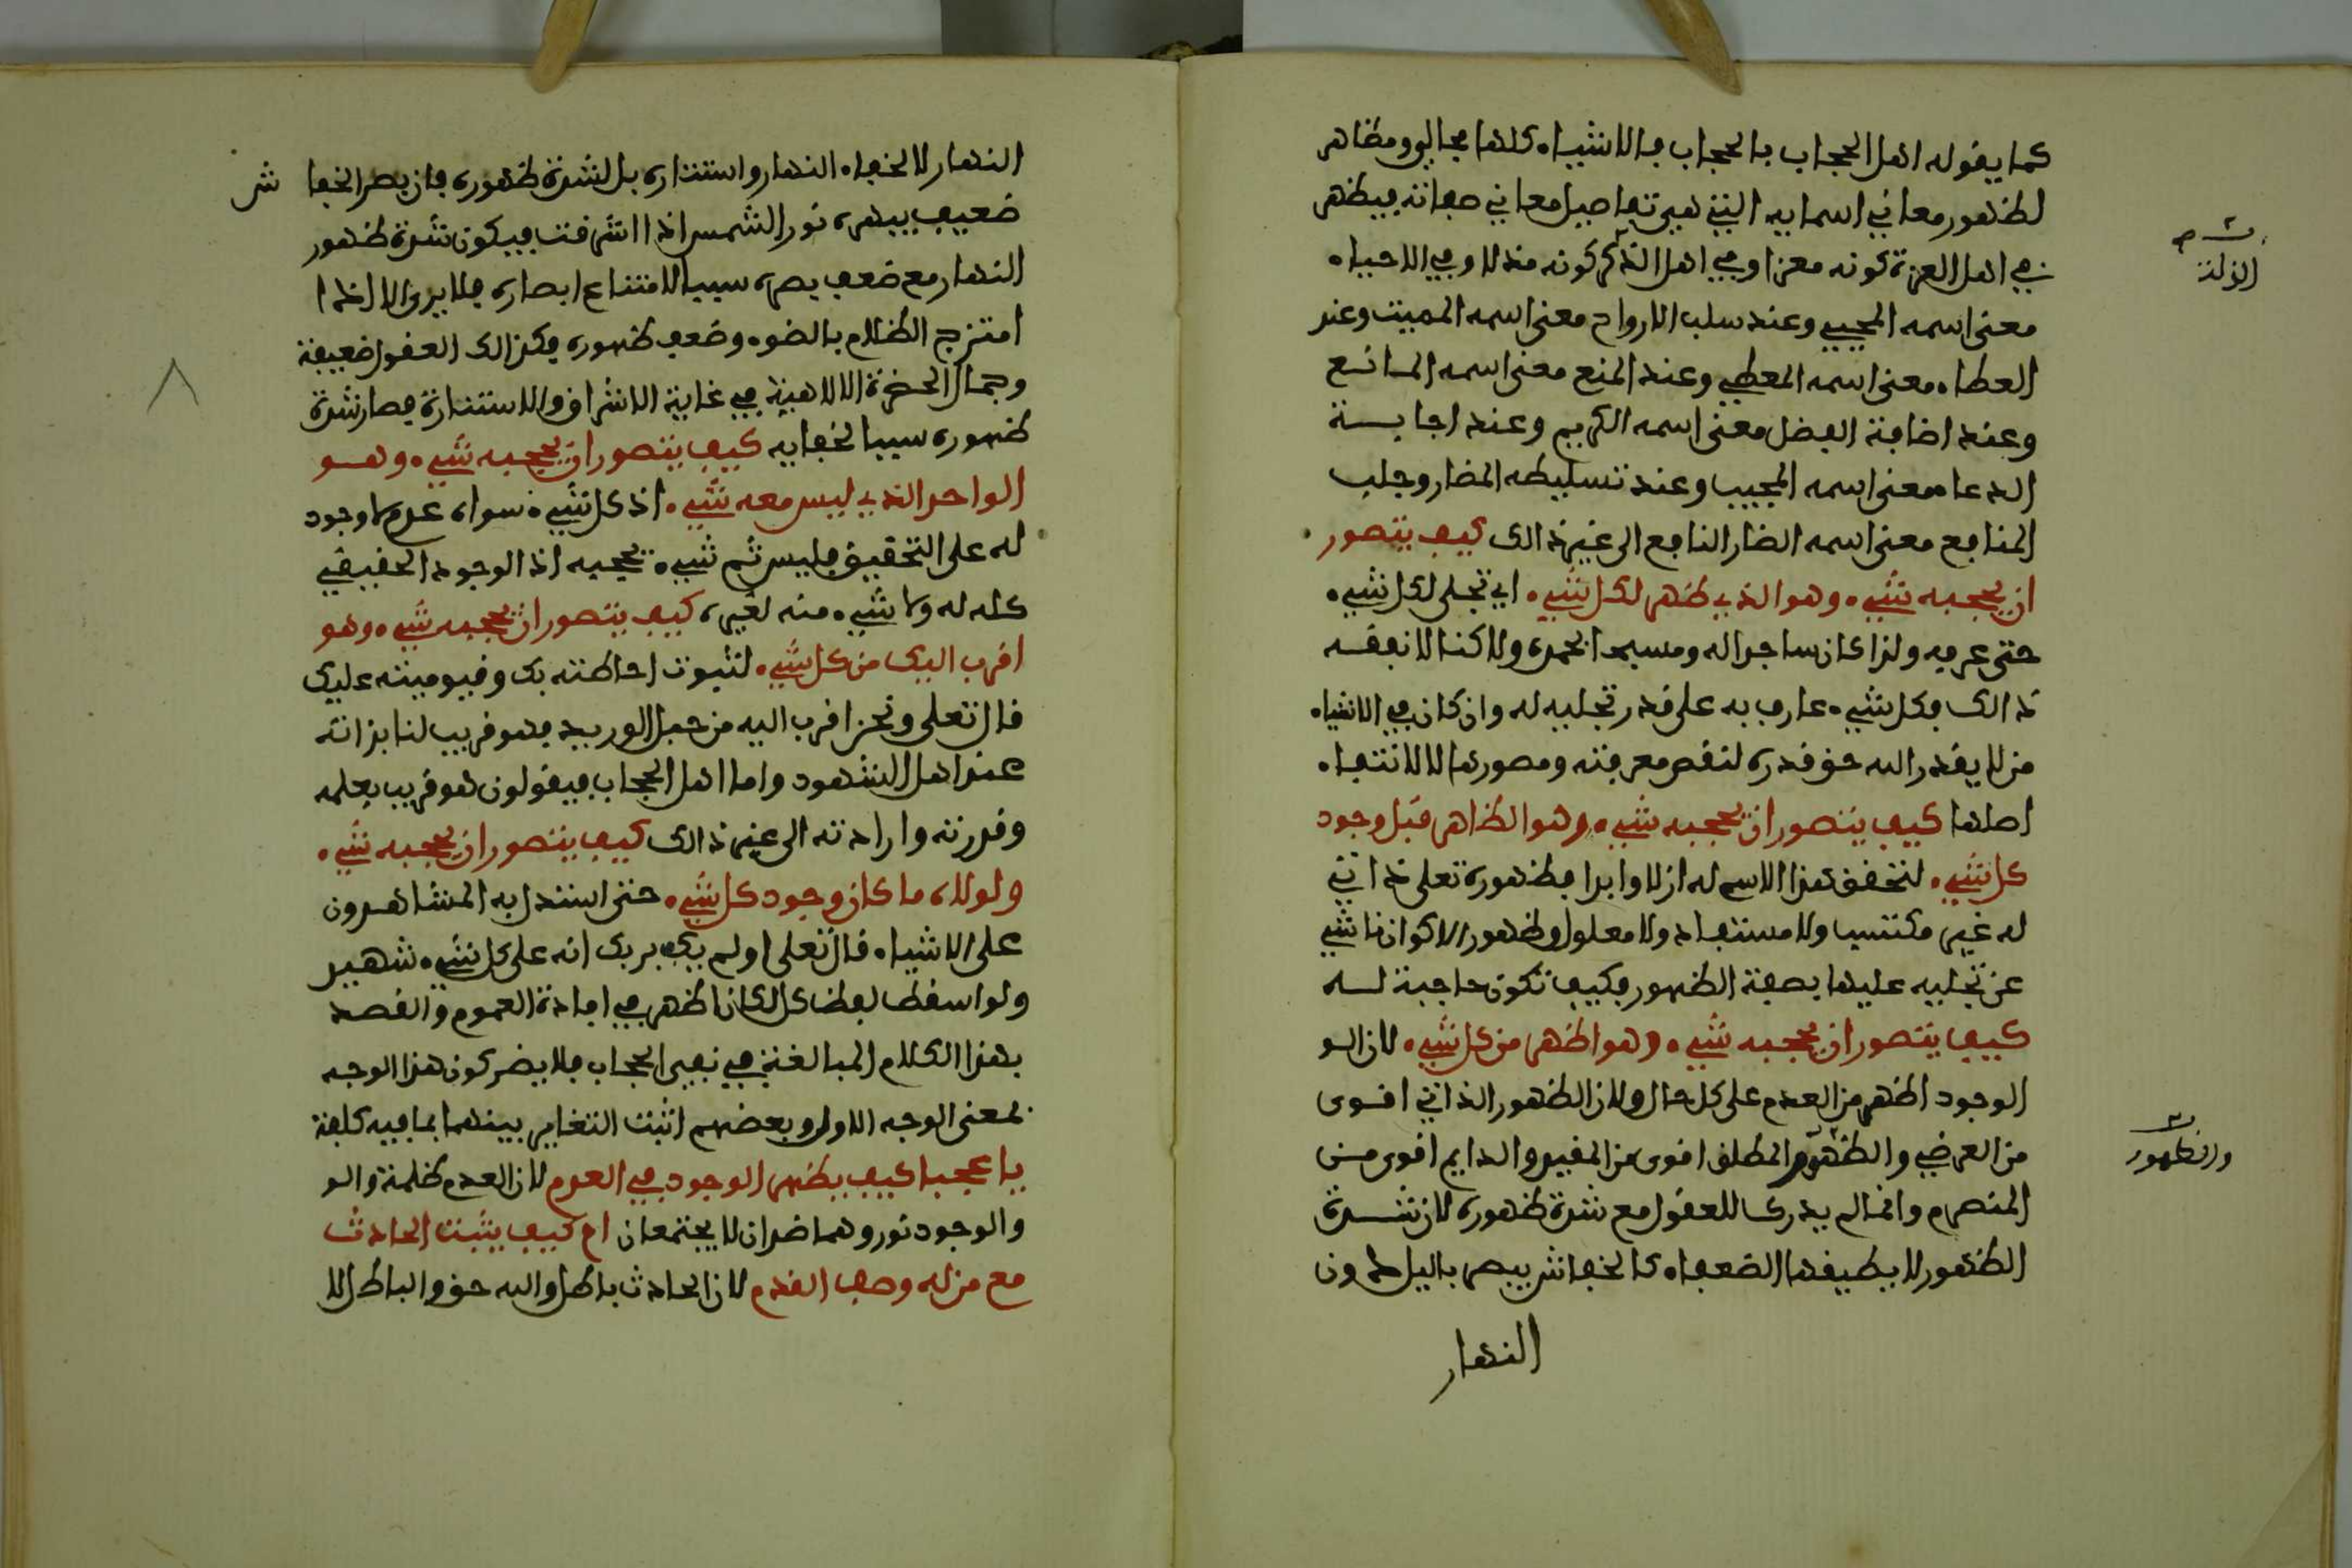 كما يقوله اهل الحجاب بالحجاب فالاشياء كلها مجالي ومظاهر
لظهور معاني اسمايه التي هي تفاصيل معاني صفاته فيظهر
في اهل العزة كونه معزا وفي اهل الذكر كونه مذلا وفي الاحياء
الزلة
معنى اسمه المحيي وعند سلب الارواح معنى اسمه المميت وعند
العطاء معنى اسمه المعطي وعند المنع معنى اسمه المانع
وعند اضافة الفضل معنى اسمه الكريم وعند اجابة
الدعاء معنى اسمه المجيب وعند تسليطه المضار وجلب
المنافع معنى اسمه الضار النافع الى غير ذالك كيف يتصور
ان يحجبه شيء وهو الذي ظهر لكل شيء اي تجلى لكل شيء
حتى عرفه ولذا كان ساجدا له ومسبحا بحمده ولاكنا لا نفقه
ذالك فكل شيء عارف به على قدر تجليه له وان كان في الاشياء
من لا يقدر الله حق قدره لنقص معرفته وصورها لا لانتفاء
اصلها كيف يتصور ان يحجبه شيء وهو الظاهر قبل وجود
كل شيء لتحقق هذا الاسم له ازلا وابدا فظهوره تعلى ذاتي
له غير مكتسب ولا مستفاد ولا معلول وظهور الاكوان ناشي
عن تجليه عليها بصفة الظهور فكيف تكون حاجبة له
كيف يتصور ان يحجبه شيء وهو اظهر من كل شيء لان الو
الوجود اظهر من العدم على كل حال ولان الظهور الذاتي اقوى
من العرضي والظهور المطلق اقوى من المقيد والدايم اقوى من
والظهور
المنصرم وانما لم يدرك للعقول مع شدة ظهوره لان شدة
الظهور لا يطيقها الضعفاء كالخفاش يبصر باليل دون
النهار
النهار لا لخفاء النهار واستتاره بل لشدة ظهوره فان بصر الخفا ش
ضعيف يبهره نور الشمس اذا اشرقت فيكون شدة ظهور
النهار مع ضعف بصره سببا لامتناع ابصاره فلا يرى الا اذا
امتزج الظلام بالضوء وضعف ظهوره فكذالك العقول ضعيفة
وجمال الحضرة الالاهية في غاية الاشراق والاستنارة فصار شدة
ظهوره سببا لخفايه كيف يتصور ان يحجبه شيء وهو
الواحد الذي ليس معه شيء اذ كل شيء سواه عدم لا وجود
له على التحقيق فليس ثم شيء يحجبه اذ الوجود الحقيقي
كله له ولا شيء منه لغيره كيف يتصور ان يحجبه شيء وهو
اقرب اليك من كل شيء لثبوت احاطته بك وقيوميته عليك
قال تعلى ونحن اقرب اليه من حبل الوريد فهو قريب لنا بذاته
عند اهل الشهود واما اهل الحجاب فيقولون هو قريب بعلمه
وقدرته وارادته الى غير ذالك كيف يتصور ان يحجبه شيء
ولولاه ما كان وجود كل شيء حتى استدل به المشاهدون
على الاشياء قال تعلى اولم يكف بربك انه على كل شيء شهيد
ولو اسقط لفظ كل لكان اظهر في افادة العموم والقصد
بهذا الكلام المبالغة في نفي الحجاب فلا يضر كون هذا الوجه
لمعنى الوجه الاول وبعضهم اثبت التغاير بينهما بما فيه كلفة
يا عجبا كيف يظهر الوجود في العدم لان العدم ظلمة والو
والوجود نور وهما ضدان لا يجتمعان ام كيف يثبت الحادث
مع من له وصف القدم لان الحادث باطل والله حق والباطل لا